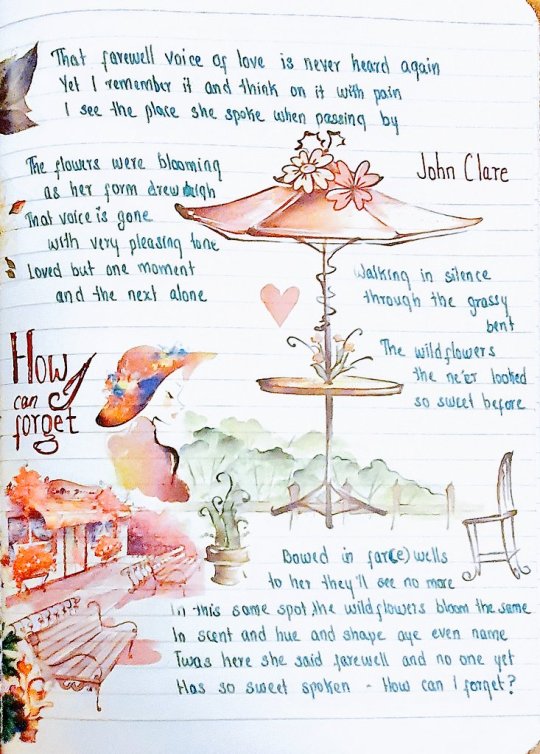 That farewell voice of love is never heard again
Yet I remember it and think on it with pain
I see the place she spoke when passing by
The flowers were blooming
as her form drew nigh
That voice is gone
with very pleasing tone
Loved but one moment
and the next alone
John Clare
Walking in silence
through the grassy
bent
The wildflowers
the ne'er looked
so sweet before
How
can I
forget
Bowed in far(e)wells
to her they'll see no more
In this same spot, the wildflowers bloom the same
In scent and hue and shape aye even name
Twas here she said farewell and no one yet
Has so sweet spoken - How can I forget?